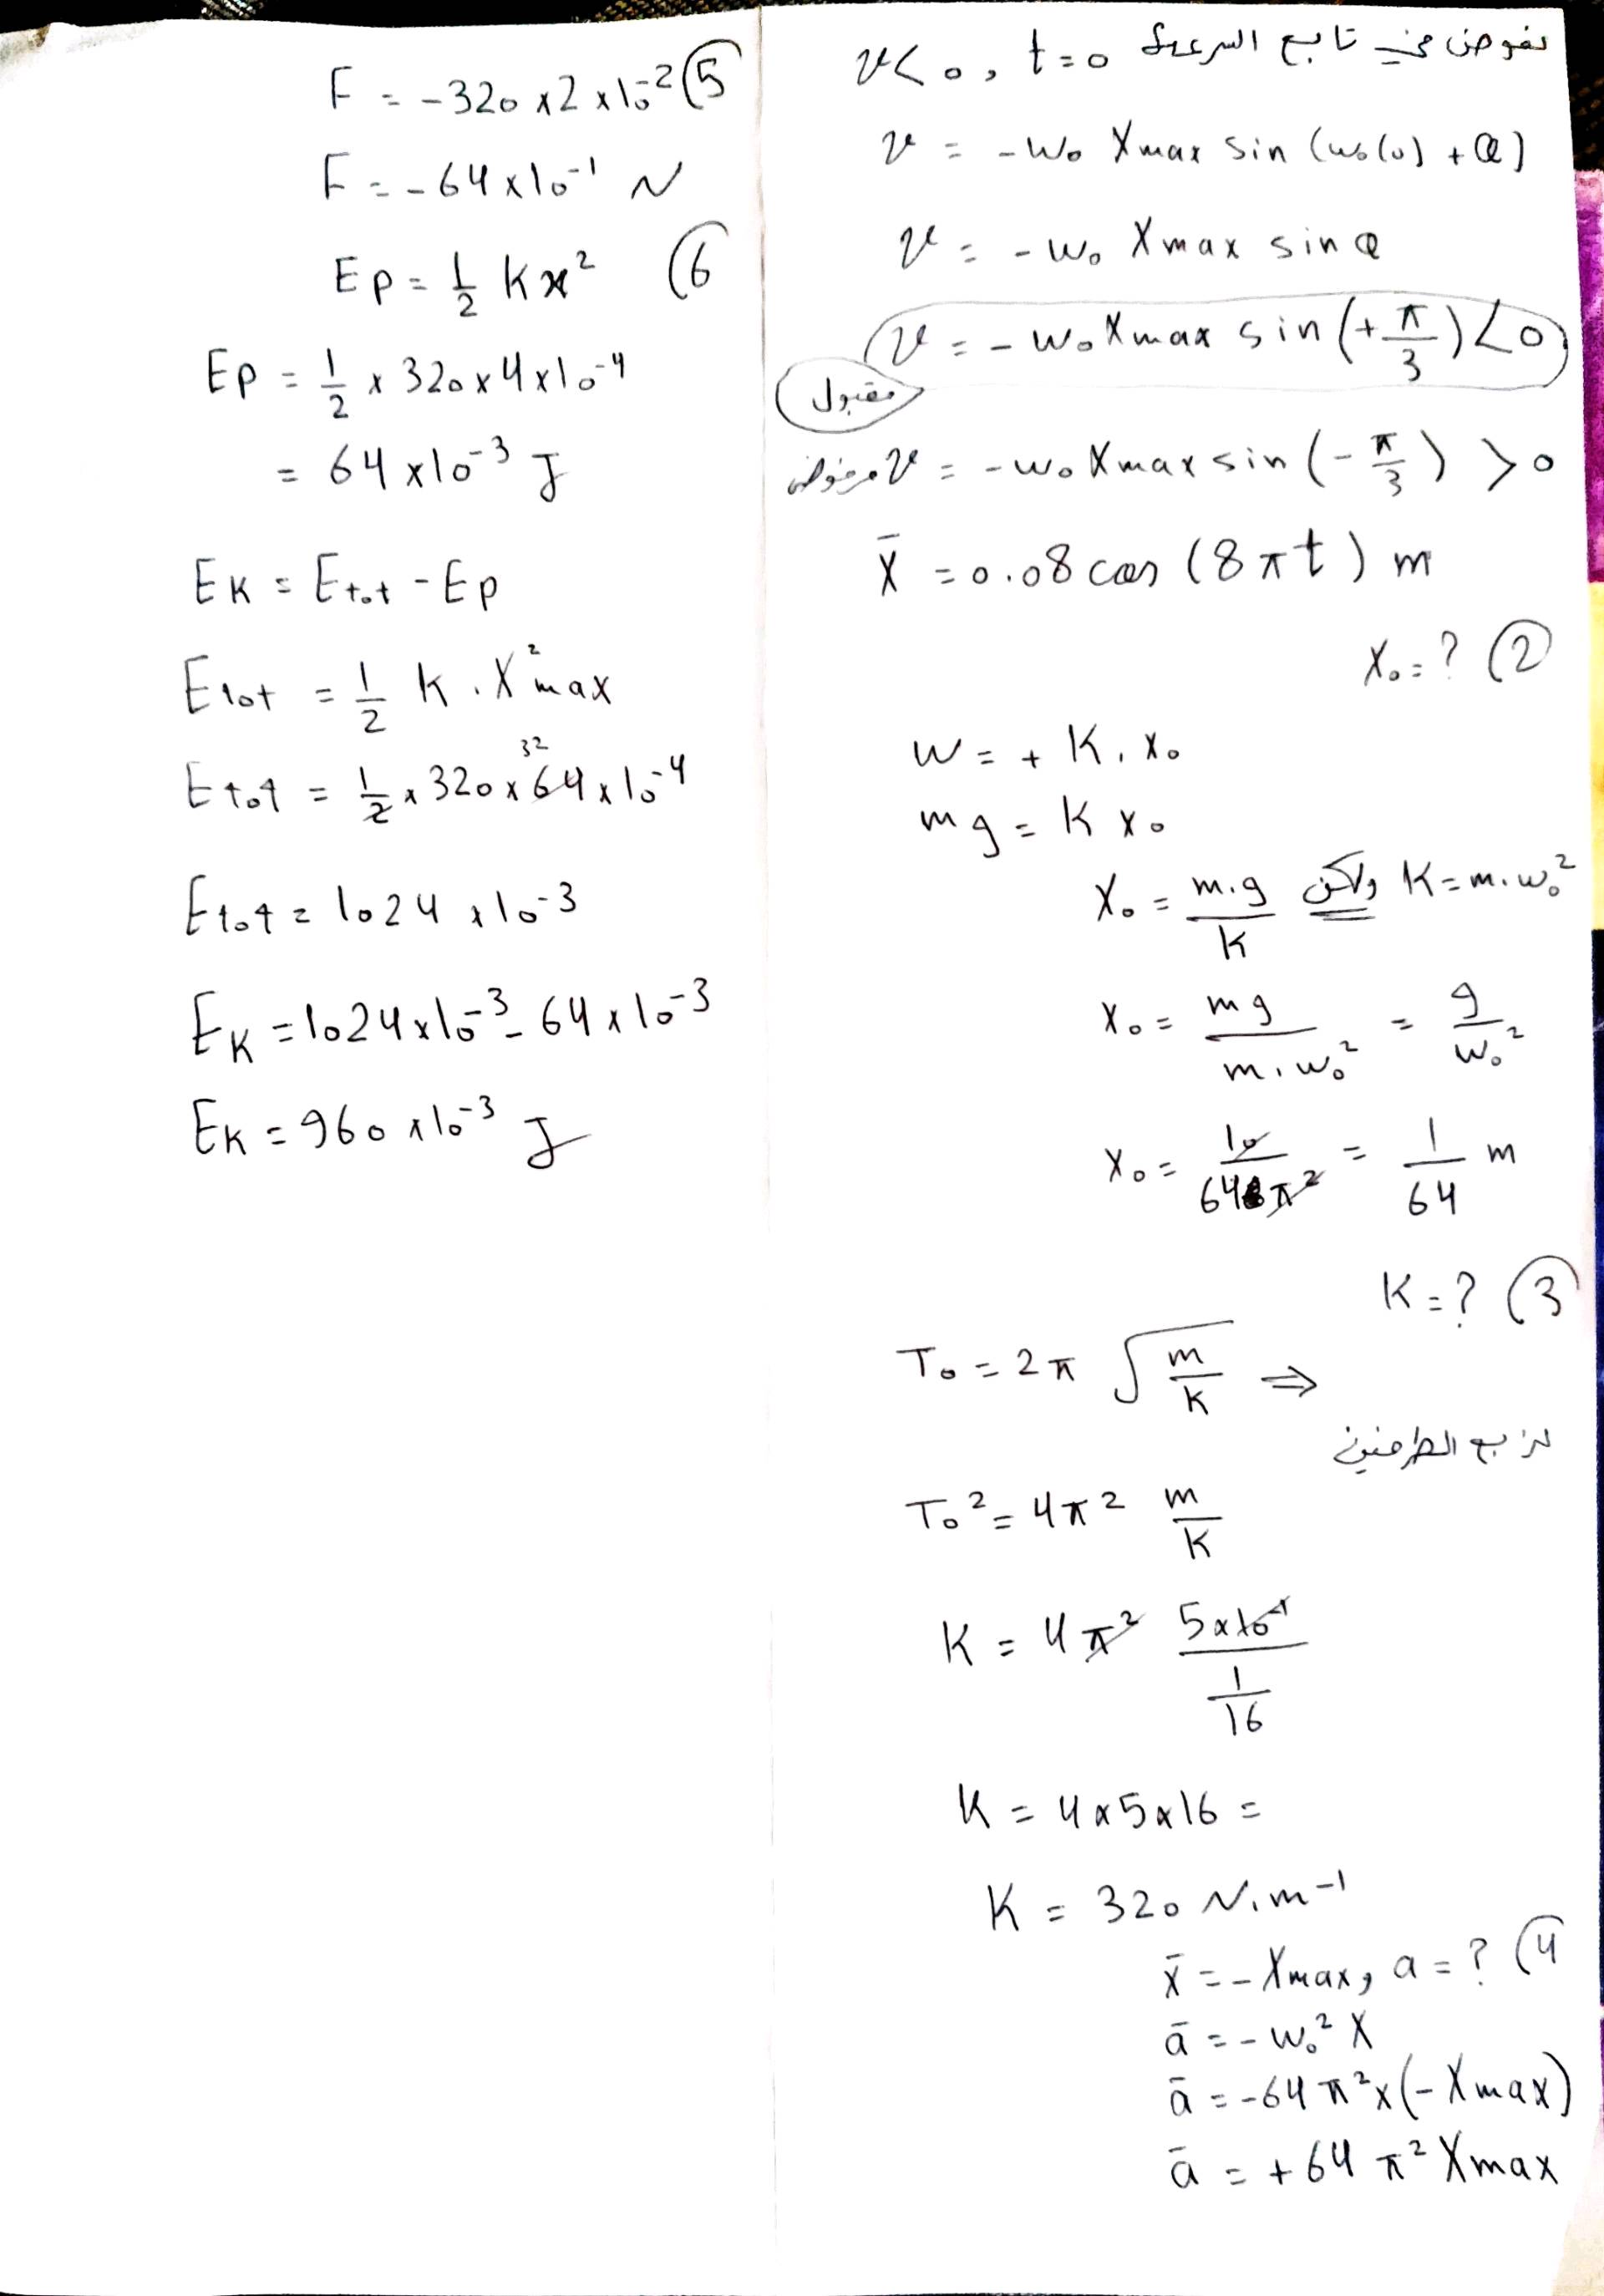 نعوض في تابع السرعة v<0, t=0
v = -w₀ Xmax sin (w₀(0) + φ)
v = -w₀ Xmax sin φ
v = -w₀ Xmax sin (+π/3) <0
مقبول
v = -w₀ Xmax sin (-π/3) >0 مرفوض
x̄ = 0.08 cos (8πt) m
X₀=? (2
w = + K . X₀
mg = K X₀
X₀ = m.g/K ولكن K = m.w₀²
X₀ = mg/m.w₀² = g/w₀²
X₀ = 10/64π² = 1/64 m
K=? (3
T₀ = 2π √(m/K) ⇒
نربع الطرفين
T₀² = 4π² m/K
K = 4π² 5x10⁻¹/(1/16)
K = 4x5x16 =
K = 320 N.m⁻¹
x̄ = -Xmax, a=? (4
ā = -w₀² X
ā = -64π²x(-Xmax)
ā = +64π² Xmax
F = -320 x2 x10⁻² (5
F = -64x10⁻¹ N
Ep = 1/2 Kx² (6
Ep = 1/2 x 320x4x10⁻⁴
= 64x10⁻³ J
EK = Etot - Ep
Etot = 1/2 K . X²max
32
Etot = 1/2 x 320x64x10⁻⁴
Etot = 1024x10⁻³
EK = 1024x10⁻³ - 64x10⁻³
EK = 960x10⁻³ J